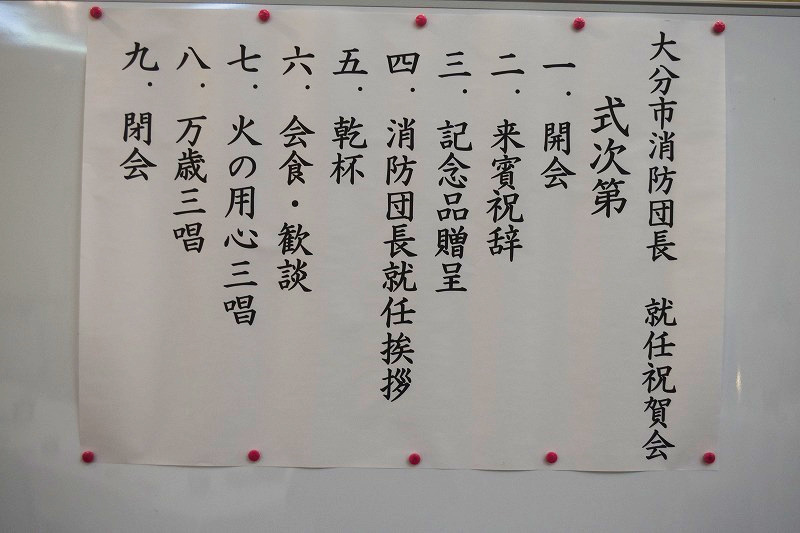 大分市消防団長　就任祝賀会
式次第
一．開会
二．来賓祝辞
三．記念品贈呈
四．消防団長就任挨拶
五．乾杯
六．会食・歓談
七．火の用心三唱
八．万歳三唱
九．閉会